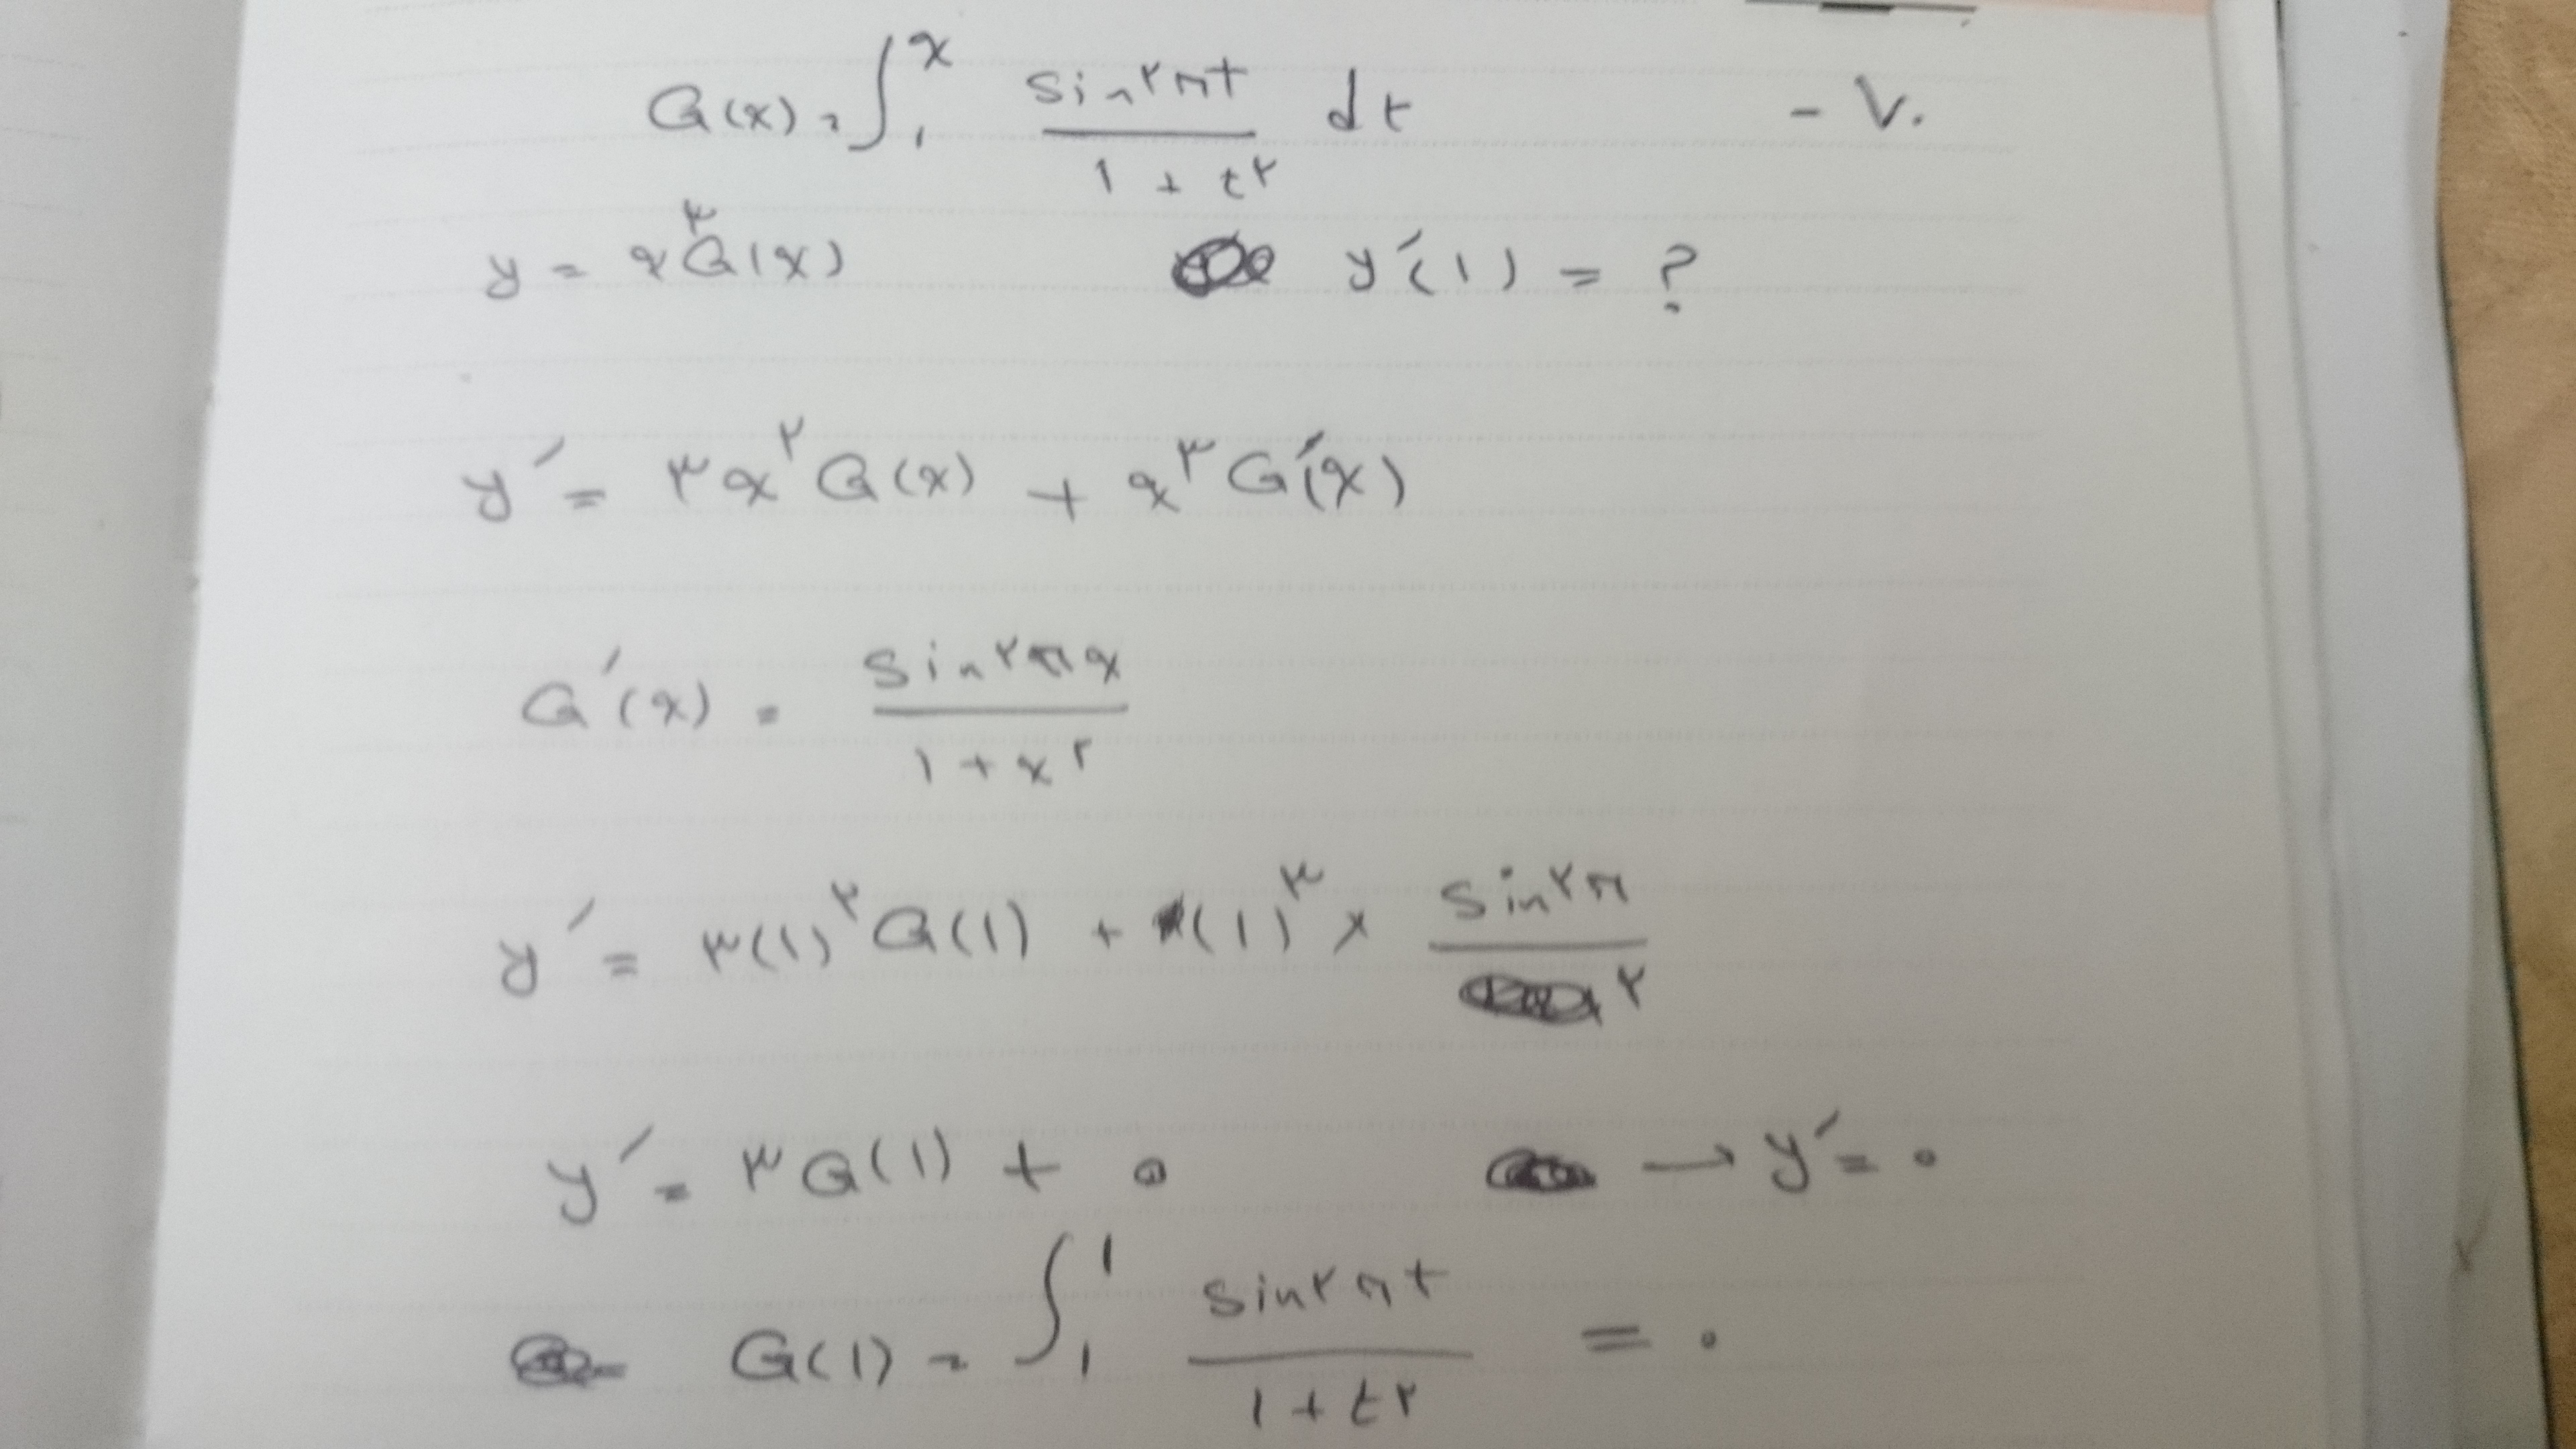 ۷۰ - G(x) = ∫₁ˣ sin۲πt / ۱ + t^۲ dt
y = x^۳ G(x)   y′(۱) = ?
y′ = ۳x^۲ G(x) + x^۳ G′(x)
G′(x) = sin۲πx / ۱ + x^۲
y′ = ۳(۱)^۲ G(۱) + (۱)^۳ × sin۲π / ۲
y′ = ۳G(۱) + ۰ → y′ = ۰
G(۱) = ∫₁¹ sin۲πt / ۱ + t^۲ = ۰